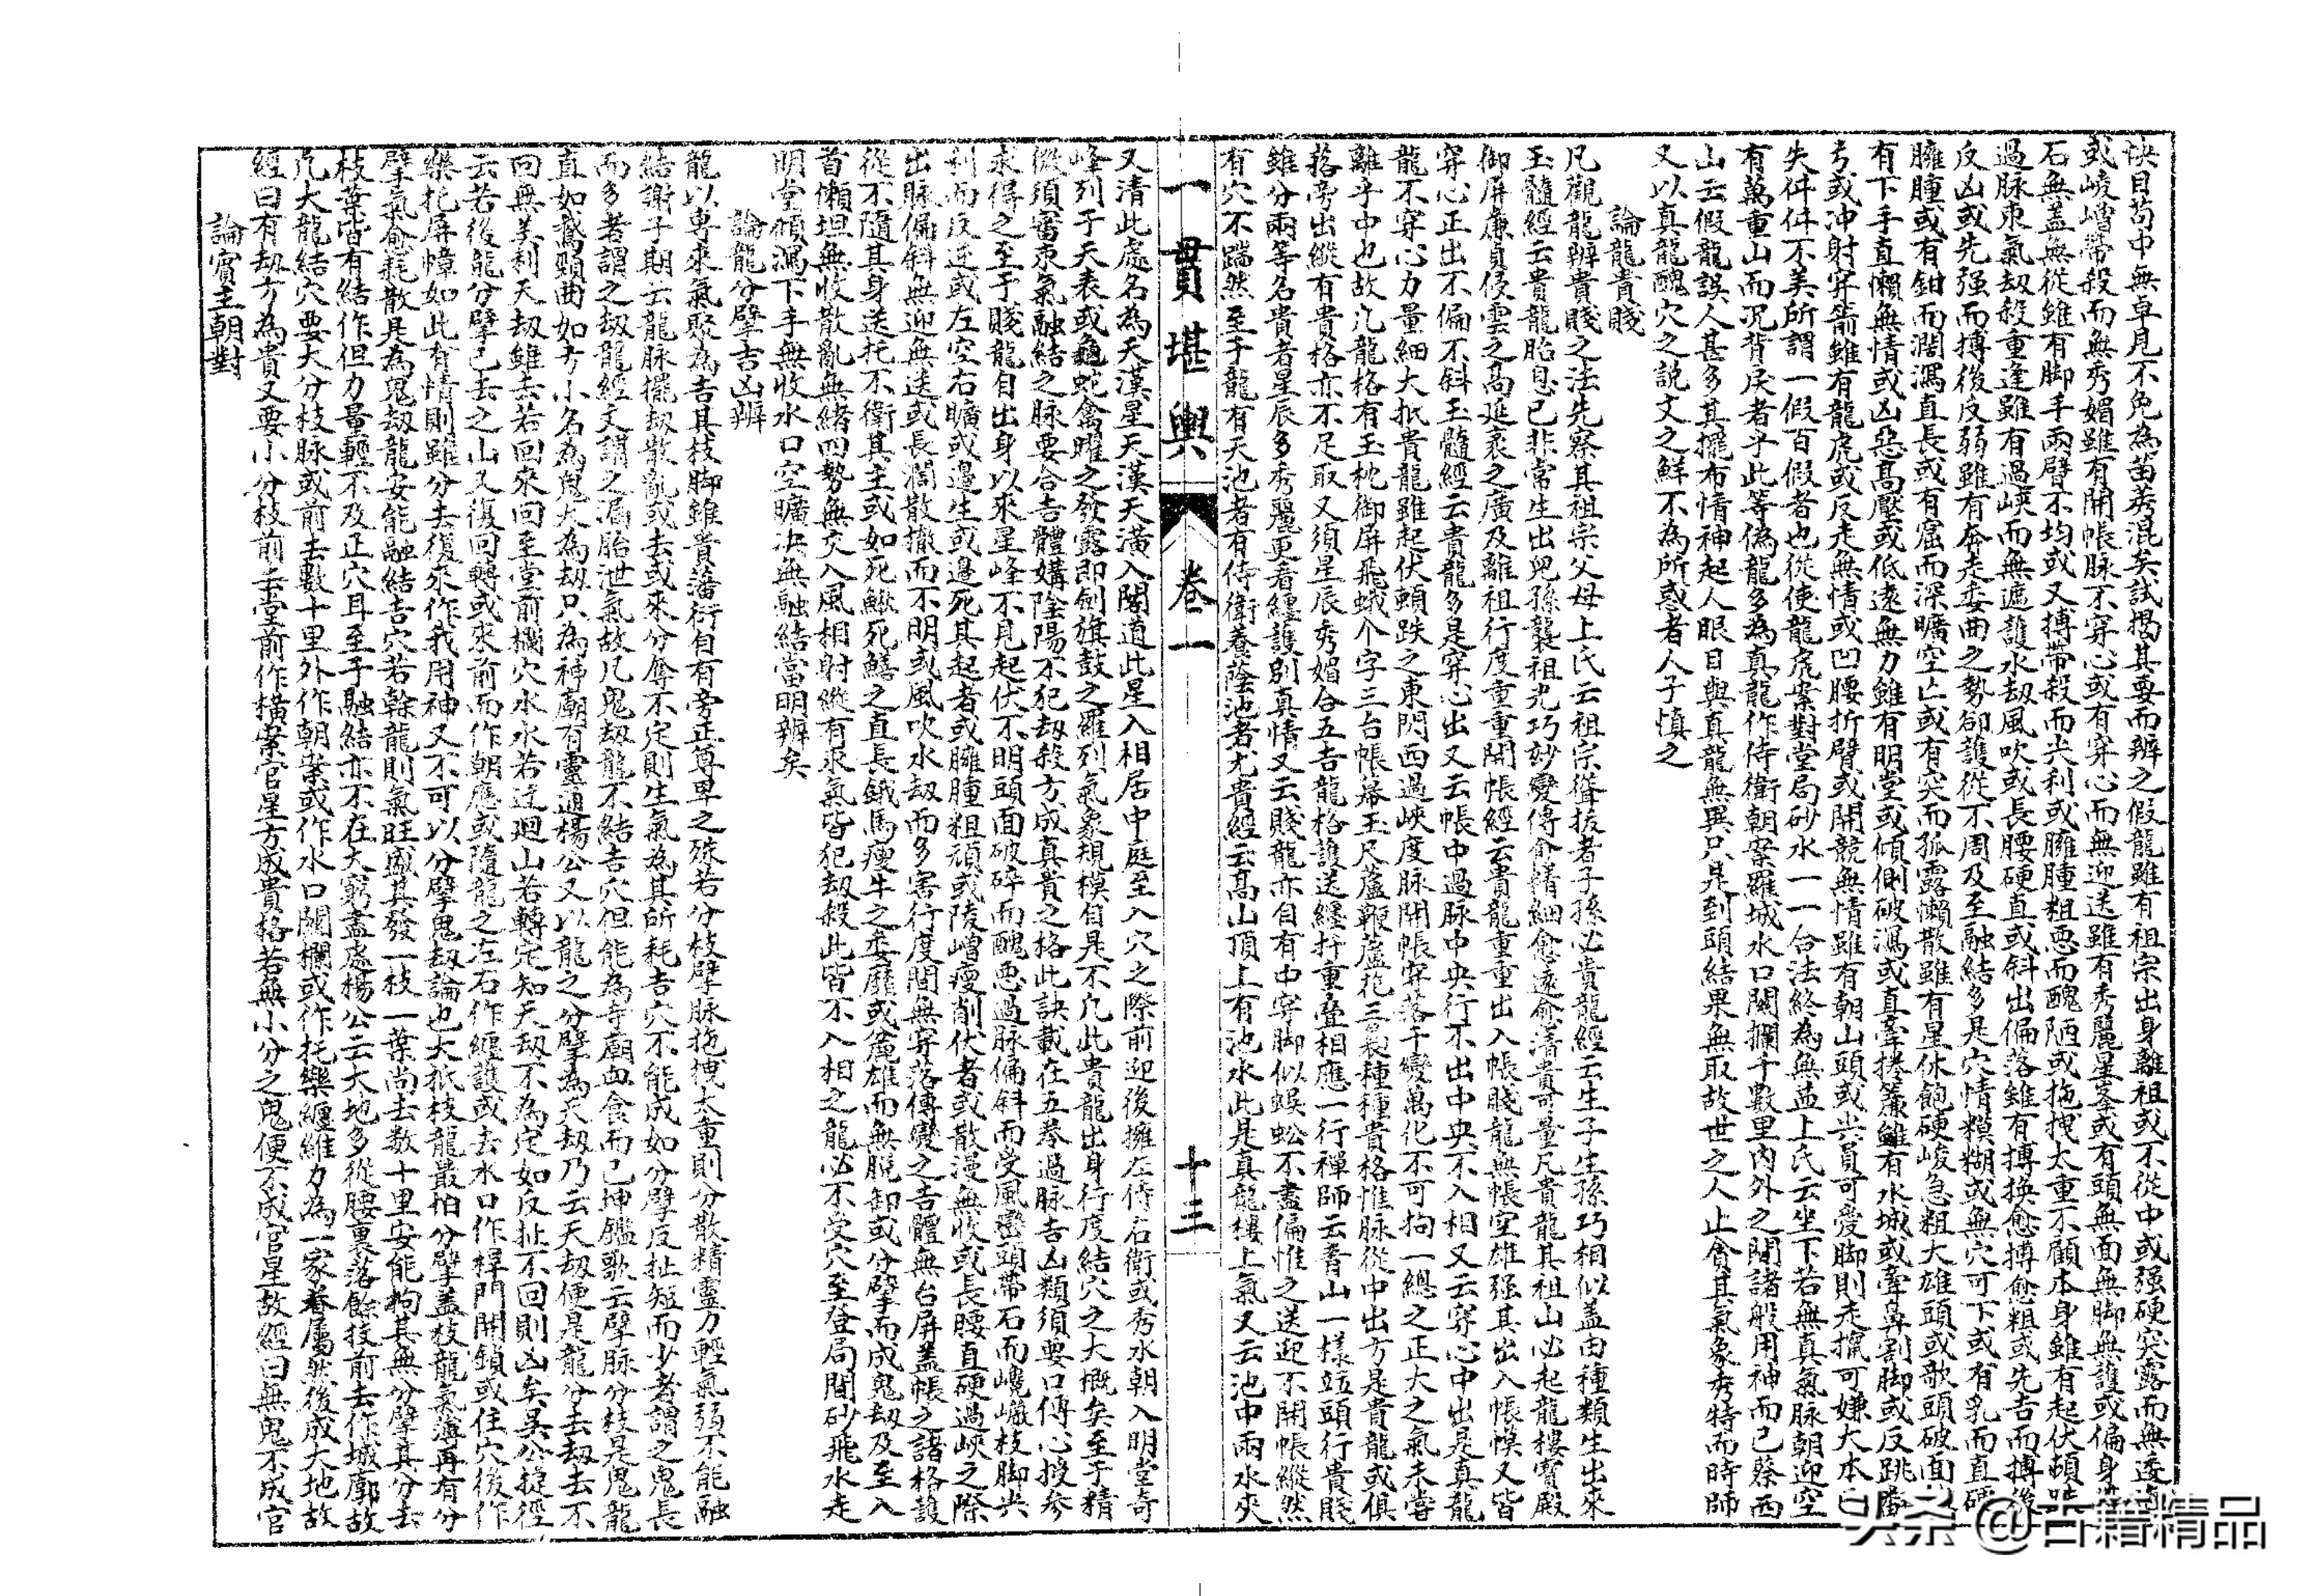 快目苟中無卓見不免為苗莠混矣試揭其要而辨之假龍雖有祖宗出身離祖或不從中或强硬突露而無逶
或崚嶒帶殺而無秀媚雖有開帳脉不穿心或有穿心而無迎送雖有秀麗星峯或有頭無面無脚無護或偏身
石無盖無從雖有脚手兩臂不均或又搏帶殺而尖利或臃腫粗惡而醜陋或拖拽太重不顧本身雖有起伏頓跌
過脉束氣刼殺重逢雖有過峽而無遮護水刼風吹或長腰硬直或斜出偏落雖有搏换愈搏愈粗或先吉而搏後
反凶或先强而搏後反弱雖有奔走委曲之勢卻護從不周及至融結多是穴情糢糊或無穴可下或有乳而直硬
臃腫或有鉗而濶瀉直長或有窟而深曠空亡或有突而孤露懶散雖有星体飽硬峻急粗大雄頭或歌頭破面
有下手直懶無情或凶惡高壓或低遠無力雖有明堂或傾側破瀉或直牽捲簾雖有水城或牽鼻割脚或反跳
弓或冲射穿箭雖有龍虎或反走無情或凹腰折臂或開競無情雖有朝山頭或尖員可愛脚則走攛可嫌大本已
失件件不美所謂一假百假者也從使龍虎案對堂局砂水一一合法終為無益上氏云坐下若無真氣脉朝迎空
有萬重山而况背戾者乎此等偽龍多為真龍作侍衛朝案羅城水口關攔千數里内外之間諸般用神而已蔡西
山云假龍誤人甚多其擺布情神起人眼目與真龍無異只是到頭結果無取故世之人止貪其氣象秀特而時師
又以真龍醜穴之說文之鮮不為所惑者人子慎之
論龍貴賤
凡觀龍辨貴賤之法先察其祖宗父母上氏云祖宗聳拔者子孫必貴龍經云生子生孫巧相似盖由種類生出來
玉髓經云貴龍胎息已非常生出兒孫襲祖光巧妙變傳俞精細愈遠俞清貴可量凡貴龍其祖山必起龍樓寳殿
御屏廉貞侵雲之高延袤之廣及離祖行度重重開帳經云貴龍重重出入帳賤龍無帳空雄强其出入帳幙又皆
穿心正出不偏不斜玉髓經云貴龍多是穿心出又云帳中過脉中央行不出中央不入相又云穿心中出是真龍
龍不穿心力量細大抵貴龍雖起伏頓跌之東閃西過峽度脉開帳穿落千變萬化不可拘一總之正大之氣未嘗
離乎中也故凢龍格有玉枕御屏飛蛾个字三台帳幕玉尺蘆鞭蘆花三裊種種貴格惟脉從中出方是貴龍或俱
落旁出縱有貴格亦不足取又須星辰秀媚合五吉龍格護送纒扞重叠相應一行禪師云看山一樣竝頭行貴賤
雖分兩等名貴者星辰多秀麗更看纒護别真情又云賤龍亦自有中穿脚似蜈蚣不盡偏惟之送迎不開帳縱然
有穴不踹然至于龍有天池者有侍衛養蔭池者尤貴經云高山頂上有池水此是真龍樓上氣又云池中兩水夾
一貫堪輿 卷二 十三
又清此處名為天漢星天漢天潢入閣道此星入相居中庭至入穴之際前迎後擁左侍右衛或秀水朝入明堂奇
峰列于天表或龜蛇禽曜之發露即劍旗鼓之羅列氣象規模自是不凢此貴龍出身行度結穴之大概矣至于精
微須審束氣融結之脉要合吉體媾陰陽不犯刼殺方成真貴之格此訣載在五卷過脉吉凶類須要口傳心授參
求得之至于賤龍自出身以來星峰不見起伏不明頭面破碎而醜惡過脉偏斜而受風巒頭帶石而巉巖枝脚尖
利而反逆或左空右曠或邊生或邊死其起者或臃腫粗頑或陵嶒瘦削伏者或散漫無收或長腰直硬過峽之際
出脉偏斜無迎無送或長濶散撤而不明或風吹水刼而多害行度間無穿落傳變之吉體無台屏盖帳之諸格護
從不隨其身送托不衛其主或如死鰍死鱔之直長餓馬瘦牛之委靡或麄雄而無脱卸或分擘而成鬼刼及至入
首懶坦無收散亂無緒四勢無交入風相射縱有束氣皆犯刼殺此皆不入相之龍必不受穴至登局間砂飛水走
明堂傾瀉下手無收水口空曠决無融結當明辨矣
論龍分擘吉凶辨
龍以專來氣聚為吉其枝脚雖貴藩衍自有旁正尊卑之殊若分枝擘脉拖拽太重則分散精靈力輕氣弱不能融
結謝子期云龍脉擺刼散亂或去或來分奪不定則生氣為其所耗吉穴不能成如分擘反扯短而少者謂之鬼長
而多者謂之刼龍經文謂之漏胎泄氣故凢鬼刼龍不結吉穴但能為寺廟血食而已坤鑑歌云擘脉分枝是鬼龍
直如鵞頸曲如弓小名為鬼大為刼只為神廟有靈通楊公又以龍之分擘為天刼乃云天刼便是龍分去刼去不
回無美利天刼雖去若回來回至堂前攔穴水水若迂廻山若轉定知天刼不為定如反扯不回則凶矣吳公捷徑
云若後龍分擘已去之山又復回轉或來前而作朝應或隨龍之左右作纒護或去水口作捍門開鎖或住穴後作
樂托屏幛如此有情則雖分去復來作我用神又不可以分擘鬼刼論也大抵枝龍最怕分擘盖枝龍氣薄再有分
擘氣俞耗散其為鬼刼龍安能融結吉穴若榦龍則氣旺盛其發一枝一葉尚去数十里安能拘其無分擘其分去
枝葉皆有結作但力量輕不及正穴耳至于融結亦不在大窮盡處楊公云大地多從腰裏落餘枝前去作城廓故
凢大龍結穴要大分枝脉或前去數十里外作朝案或作水口關攔或作托樂纒維力為一家眷屬然後成大地故
經曰有刼方為貴又要小分枝前去堂前作橫案官星方成貴格若無小分之鬼便不成官星故經曰無鬼不成官
論賓主朝對
头条@古籍精品